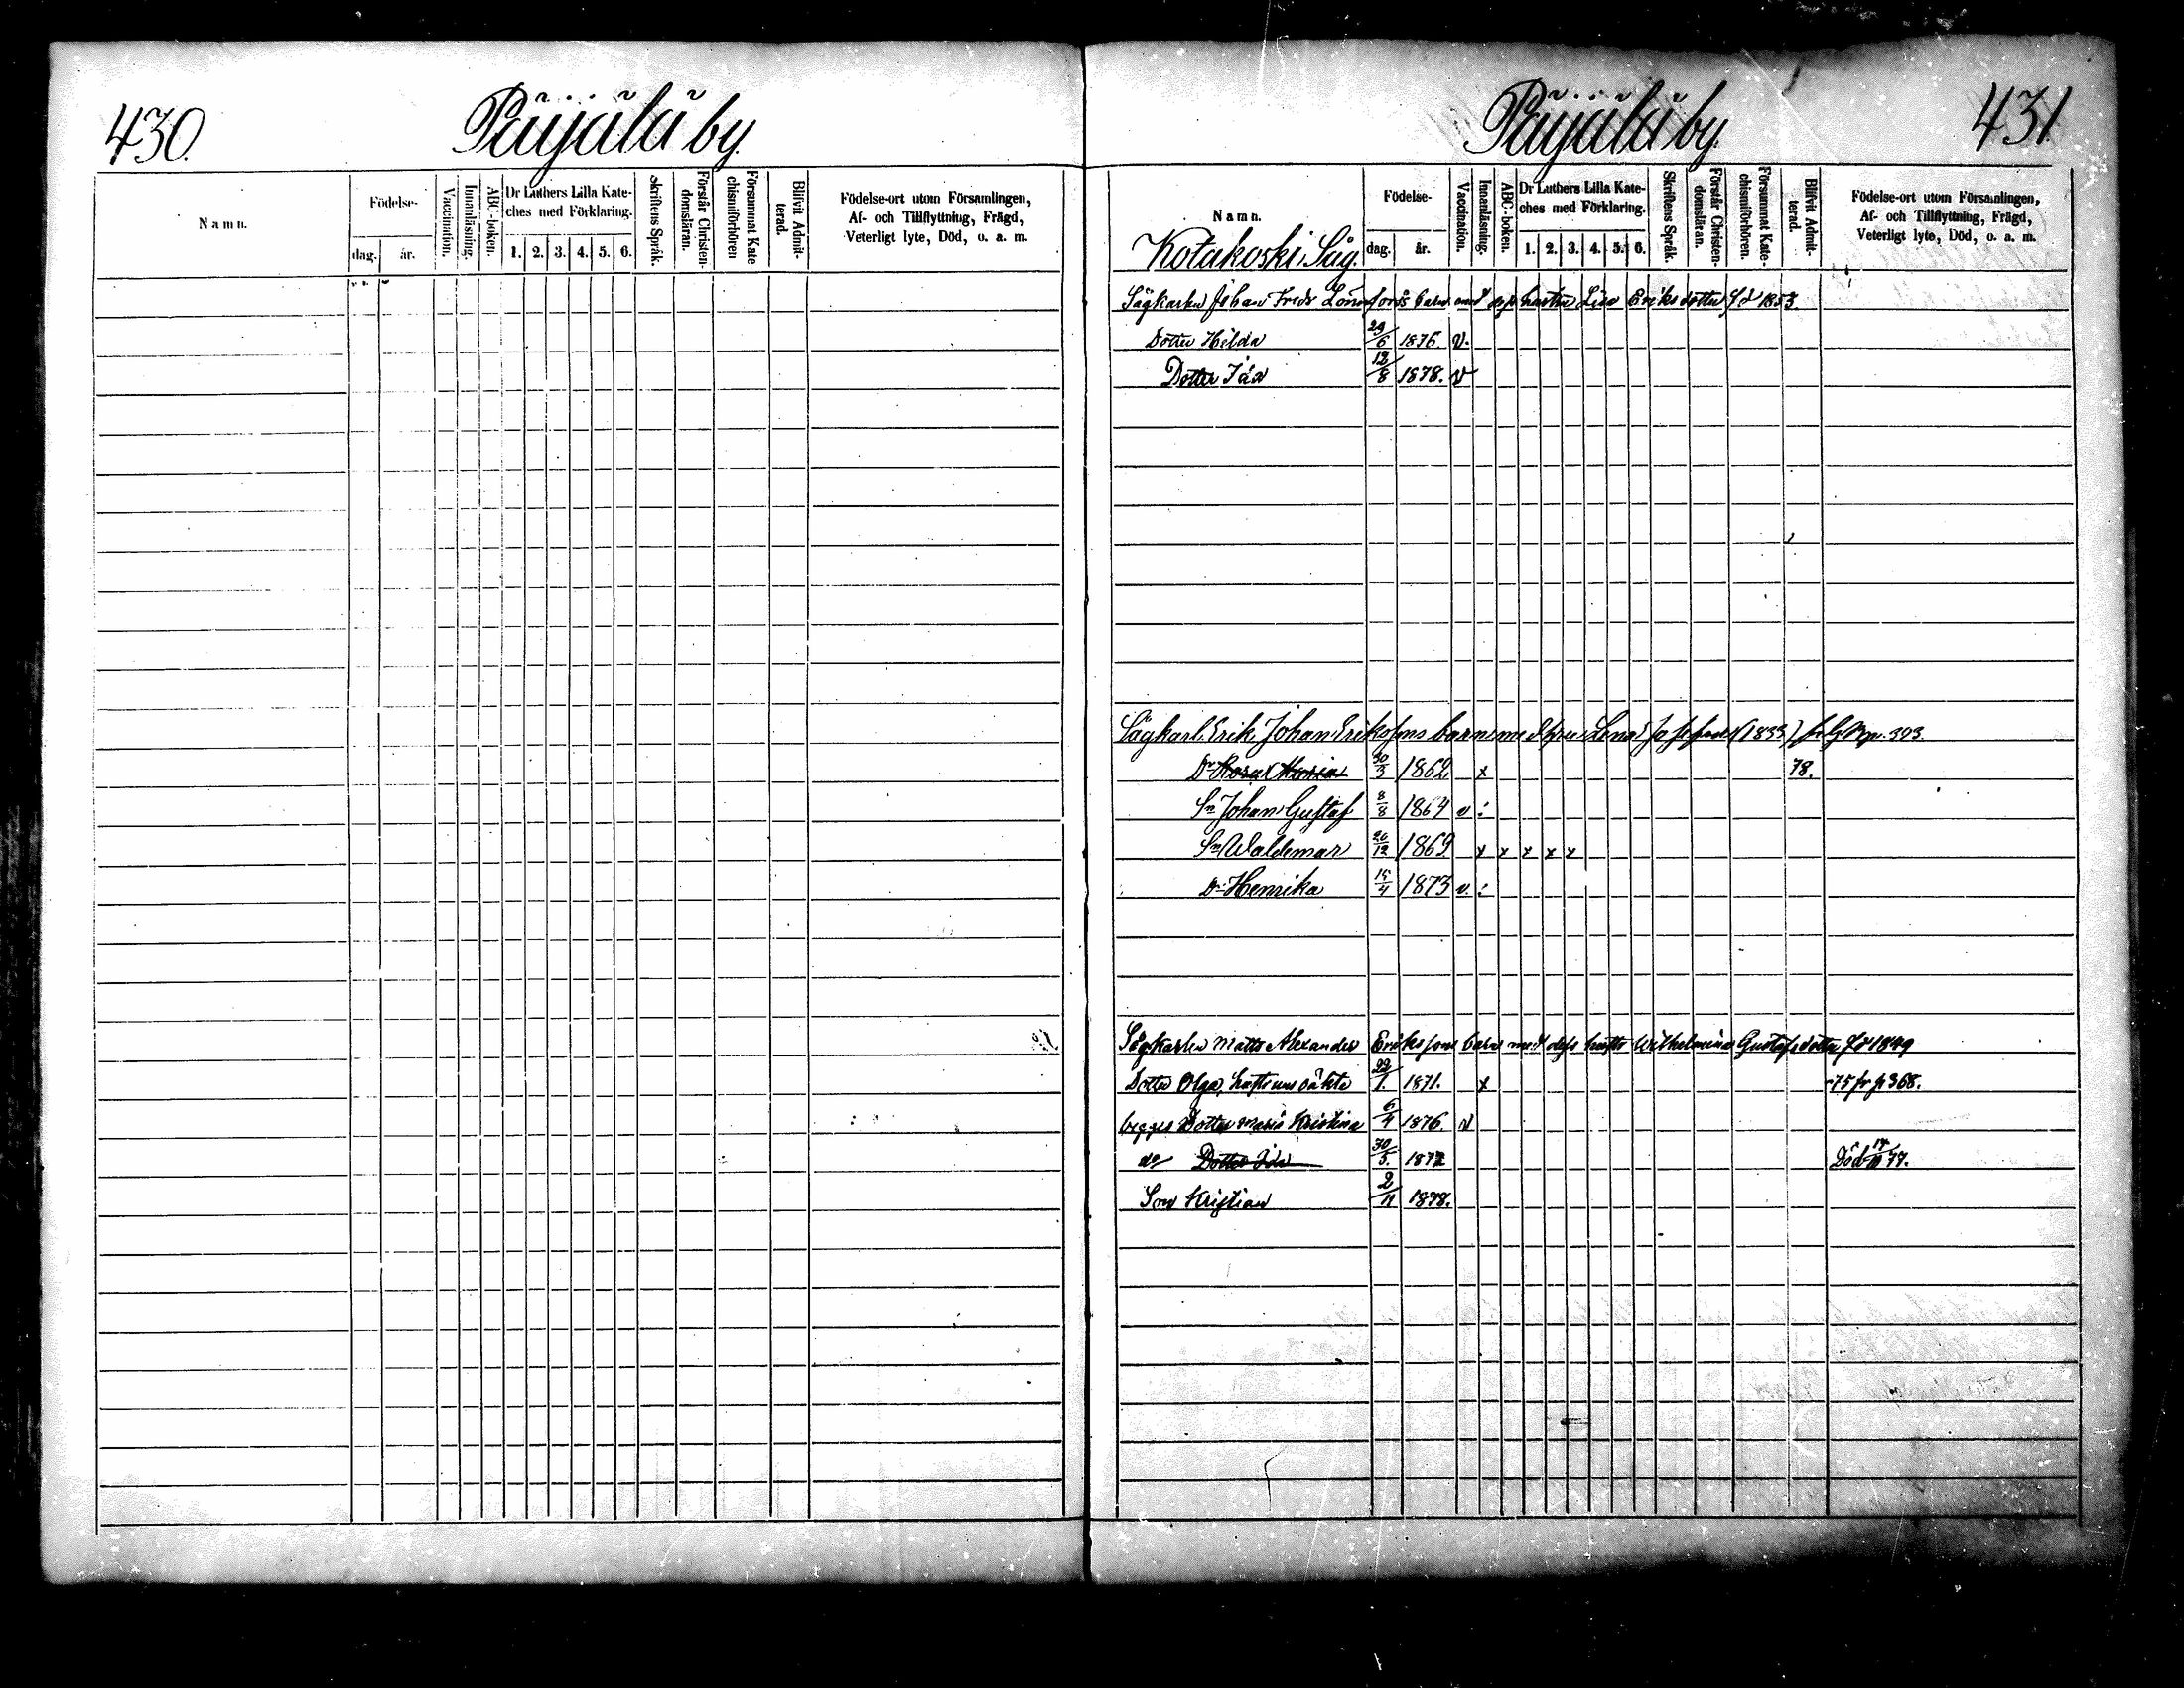 430.
Päijälä by
Namn.
Födelse-
dag.
år.
Vaccination.
Innanläsning.
ABC-boken.
Dr Luthers Lilla Kate-
ches med Förklaring.
1. 2. 3. 4. 5. 6.
Skriftens Språk.
Förstår Christen-
domsläran.
Försummat Kate-
chismiförhören
Blifvit Admit-
terad.
Födelse-ort utom Församlingen,
Af- och Tillflyttning, Frägd,
Veterligt lyte, Död, o. a. m.
Päijälä by
431
Namn.
Kotakoski Såg.
Födelse-
dag.
år.
Vaccination.
Innanläsning.
ABC-boken.
Dr Luthers Lilla Kate-
ches med Förklaring.
1. 2. 3. 4. 5. 6.
Skriftens Språk.
Förstår Christen-
domsläran.
Försummat Kate-
chismiförhören.
Blifvit Admit-
terad.
Födelse-ort utom Församlingen,
Af- och Tillflyttning, Frägd,
Veterligt lyte, Död, o. a. m.
Sågkarlen Johan Fredr Lönnfors's barn med hustru Eriksdotter f d 1853
Dotter Hilda 29/6 1876. v.
Dotter Ida 12/8 1878. v
Sågkarl. Erik Johan Eriksons barn med hru Lena (1833) p. 393.
Dr Rosa Maria 30/3 1862 x 78.
Sn Johan Gustaf 8/8 1864 v :
Sn Waldemar 26/12 1869 x x x x x
Dr Henrika 15/4 1873 v. :
Sågkarlen Matts Alexander Eriksons barn med dess hustr Wilhelmina Gustafsdotter f d 1849
Dotter Olga, hustruns oäkta 22/1. 1871. x -75 fr p 368.
begges Dotter Maria Kristina 6/4 1876. v
do Dotter Ida 30/5. 1877 Död 77.
Son Kristian 2/11 1878.